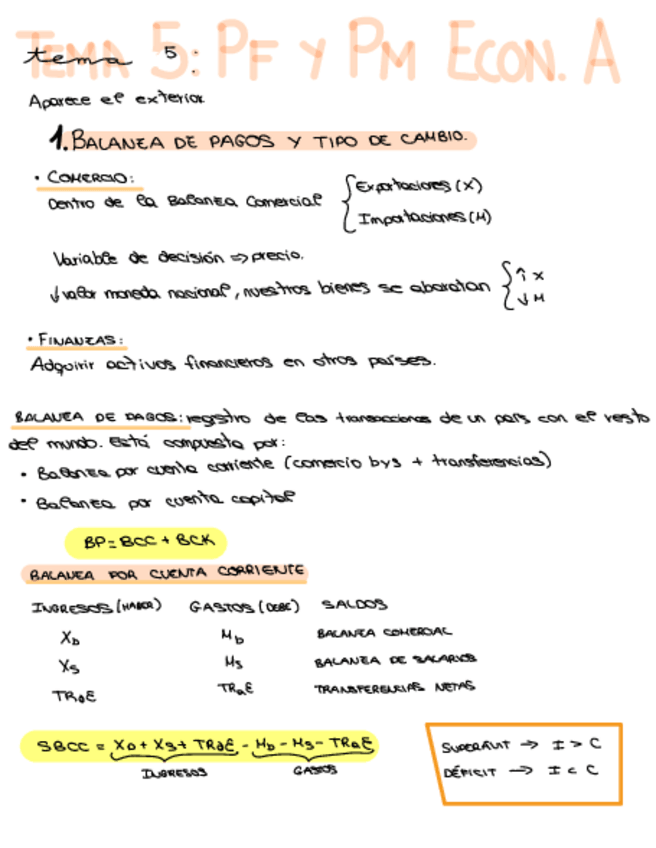 TEMA 5: PF Y PM ECON. A
tema 5:
Aparece el exterior
1. BALANZA DE PAGOS Y TIPO DE CAMBIO.
• COMERCIO:
Dentro de la Balanza Comercial { Exportaciones (X)
Importaciones (M)
Variable de decisión => precio.
↓ valor moneda nacional, nuestros bienes se abaratan { ↑ X
↓ M
• FINANZAS:
Adquirir activos financieros en otros países.
BALANZA DE PAGOS: registro de las transacciones de un país con el resto
del mundo. Está compuesta por:
• Balanza por cuenta corriente (comercio bys + transferencias)
• Balanza por cuenta capital
BP = BCC + BCK
BALANZA POR CUENTA CORRIENTE
INGRESOS (HABER) GASTOS (DEBE) SALDOS
Xb Mb BALANZA COMERCIAL
Xs Ms BALANZA DE SALARIOS
TRdE TRaE TRANSFERENCIAS NETAS
SBCC = Xb + Xs + TRdE - Mb - Ms - TRaE
INGRESOS GASTOS
SUPERÁVIT → I > C
DÉFICIT → I < C